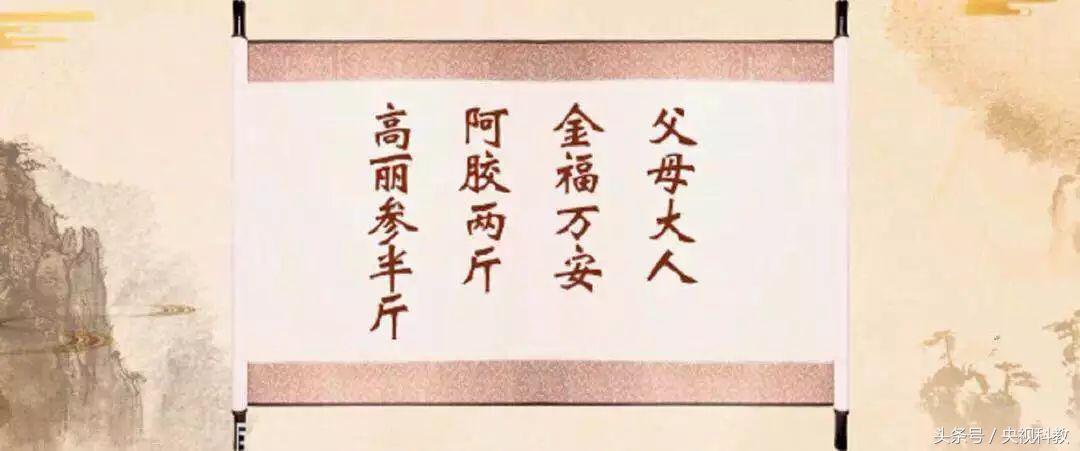 父母大人
金福万安
阿胶两斤
高丽参半斤
头条号 / 央视科教